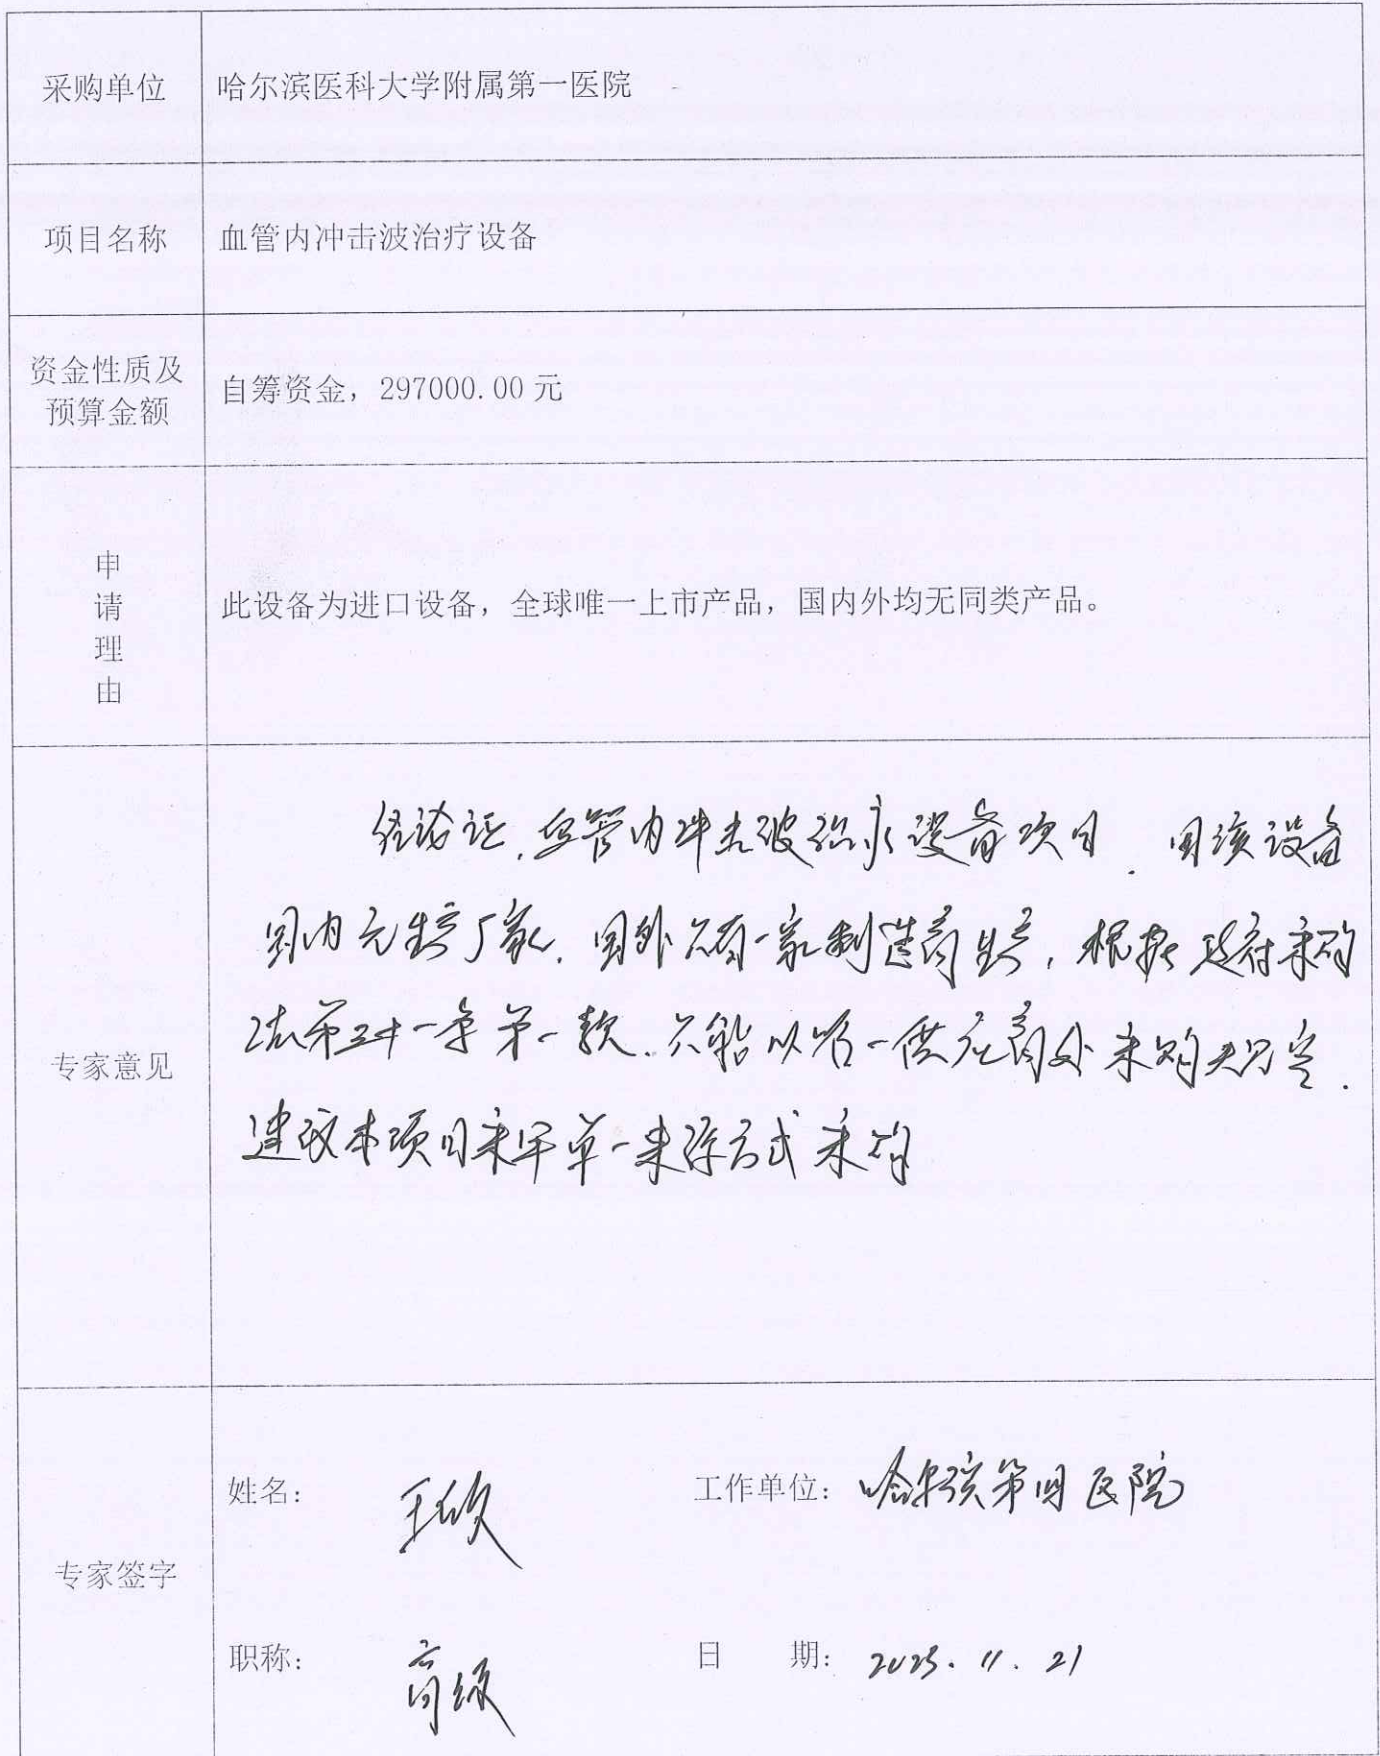 采购单位 哈尔滨医科大学附属第一医院
项目名称 血管内冲击波治疗设备
资金性质及
预算金额
自筹资金，297000.00 元
申
请
理
由
此设备为进口设备，全球唯一上市产品，国内外均无同类产品。
专家意见
经论证，血管内冲击波治疗设备项目．因该设备
国内无生产厂家，国外只有一家制造商生产，根据政府采购
法第三十一条第一款．只能从唯一供应商处采购规定．
建议本项目采用单一来源方式采购
专家签字
姓名： 王欣 工作单位： 哈尔滨第四医院
职称： 高级 日 期： 2023.11.21